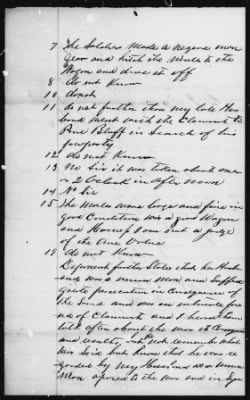 7 The Soldiers made a negro man
Gear and hitch the Mules to the
Wagon and drive it off
8 do not Know
10 do not
11 do not further than my late Hus
band went with the Claimant to
Pine Bluff in Search of his
property
12 do not Know
13 No Sir it was taken about one
or 2 Oclock in After noon
14 No Sir
15 The Mules were large and fine in
good Condition was a good Wagon
and Harness I am not a judge
of the true Value
19 do not Know
Deponent further States that her Husb
and was a Union Man and Suffered
greate persecution in Consequence of
the Same and was an intimate fri
end of Claimant and I heard him
talk often about the war
and do not remember what
was Said but Know that he was re
garded by My Husband as a Union
Man opposed to the war and in